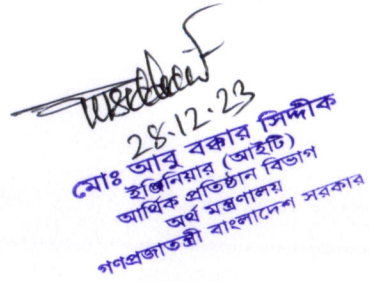 28.12.23
মোঃ আবু বক্কার সিদ্দীক
ইঞ্জিনিয়ার (আইটি)
আর্থিক প্রতিষ্ঠান বিভাগ
অর্থ মন্ত্রণালয়
গণপ্রজাতন্ত্রী বাংলাদেশ সরকার